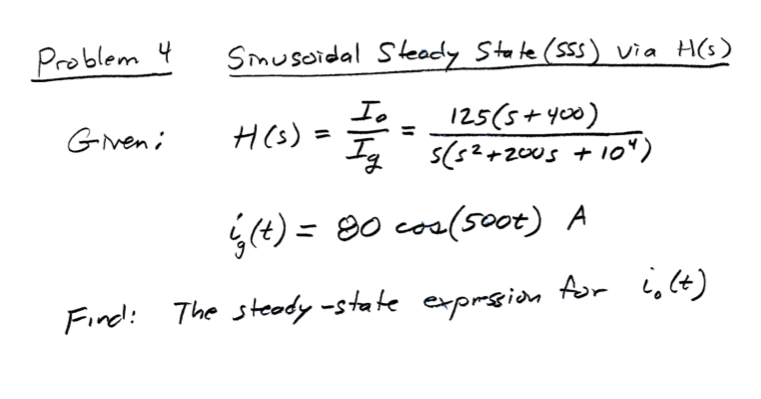 Problem 4 Sinusoidal Steady State (SSS) via H(s)
Given: H(s) = I₀/I_g = 125(s+400) / s(s²+200s + 10⁴)
i_g(t) = 80 cos(500t) A
Find: The steady-state expression for i₀(t)